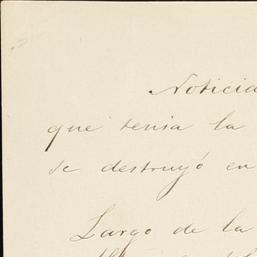 Noticia
que tenia la
se destruyó en
Largo de la